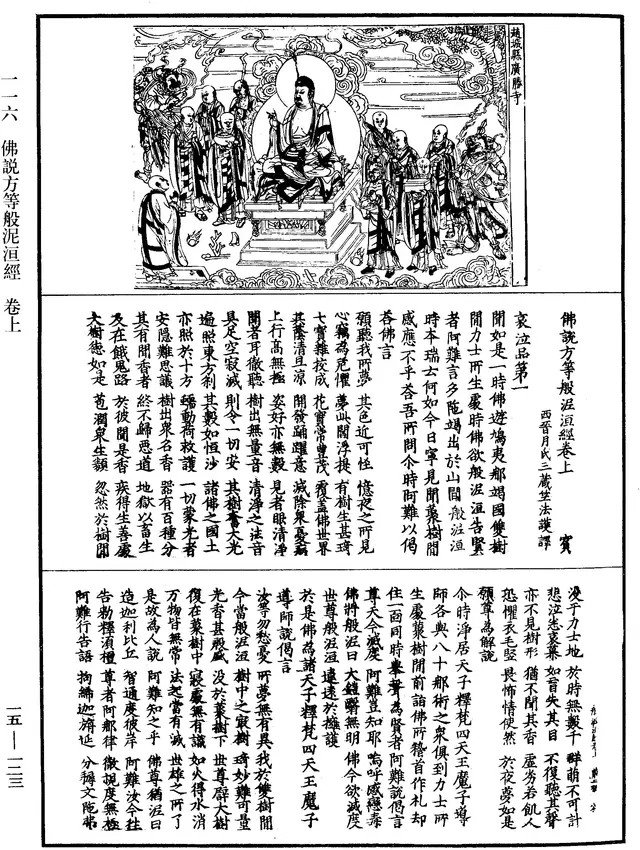 趙城縣廣勝寺
一一六 佛説方等般泥洹經 卷上
佛說方等般泥洹經卷上 賓
西晉月氏三藏竺法護譯
哀泣品第一
聞如是一時佛遊鳩夷那竭國雙樹
間力士所生處時佛欲般泥洹告賢
者阿難言多陁竭出於山間般泥洹
時本瑞云何如今日寧見聞叢樹間
感應不乎荅吾所問尒時阿難以偈
荅佛言
願聽我所夢 其色近可怪 憶夜之所見
心竊為恐懼 夢此閻浮提 有樹生甚琦
七寶雜挍成 花實常甚茂 覆蓋佛世界
其蔭清且涼 開發踊躍意 滅除衆憂惱
上行高無極 姿好亦無數 見者眼清淨
聞者耳徹聽 樹出無量音 清淨之法音
具足空寂滅 則令一切安 其樹奮大光
遍照東方刹 其數如恒沙 諸佛之國土
亦照於十方 蠕動荷救護 一切蒙光者
安隱難思議 樹出衆名香 器有百種分
其有聞香者 終不歸惡道 地獄以畜生
及在餓鬼路 於彼聞是香 疾得生善處
大樹德如是 苞潤衆生類 忽然於樹間
没于力士地 於時無數千 群萌不可計
悲泣悉哀慕 如盲失其目 不復聽其聲
亦不見樹形 猶不聞其香 虛劣若飢人
恐懼衣毛竪 畏怖情使然 於夜夢如是
願尊為解說
尒時淨居天子釋梵四天王魔子導
師各與八十那術之衆俱到力士所
生處叢樹間前詣佛所稽首作礼却
住一面同時舉聲為賢者阿難說偈言
尊天今滅度 阿難豈知耶 嗚呼感戀毒
佛將般泥曰 大鎧翳無明 佛今欲滅度
世尊般泥洹 遠於擁護
於是佛為諸天子釋梵四天王魔子
導師說偈言
汝等勿愁憂 所夢無有異 我於雙樹間
今當般泥洹 樹中之寂樹 琦妙難可量
光香甚殷盛 没於叢樹下 世尊辟大樹
復在叢樹中 寂處無有識 如火得水消
万物皆無常 法起當有滅 世雄之所了
是故為人說 阿難知之乎 佛尊猶泥曰
造迦利比丘 智通度彼岸 阿難汝今往
告勑釋須檀 尊者阿那律 微視度無極
阿難行告語 拘絺迦旃延 分耨文陁弗
一五—一二三